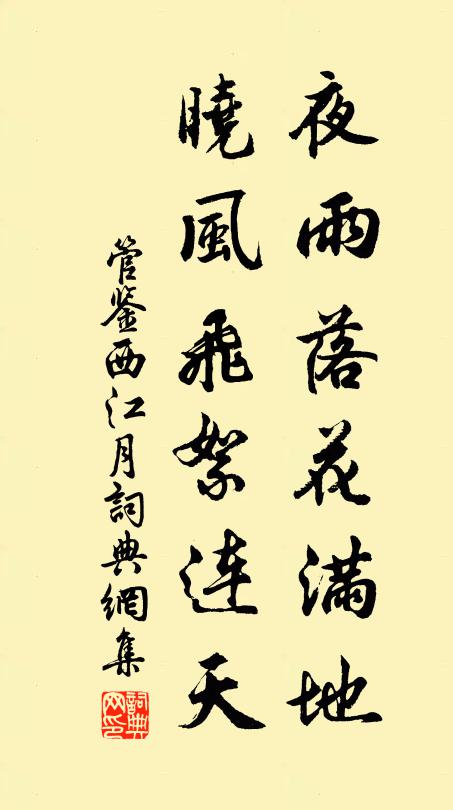 夜雨落花滿地
曉風飛絮連天
管鉴西江月詞典網集
詞典網印